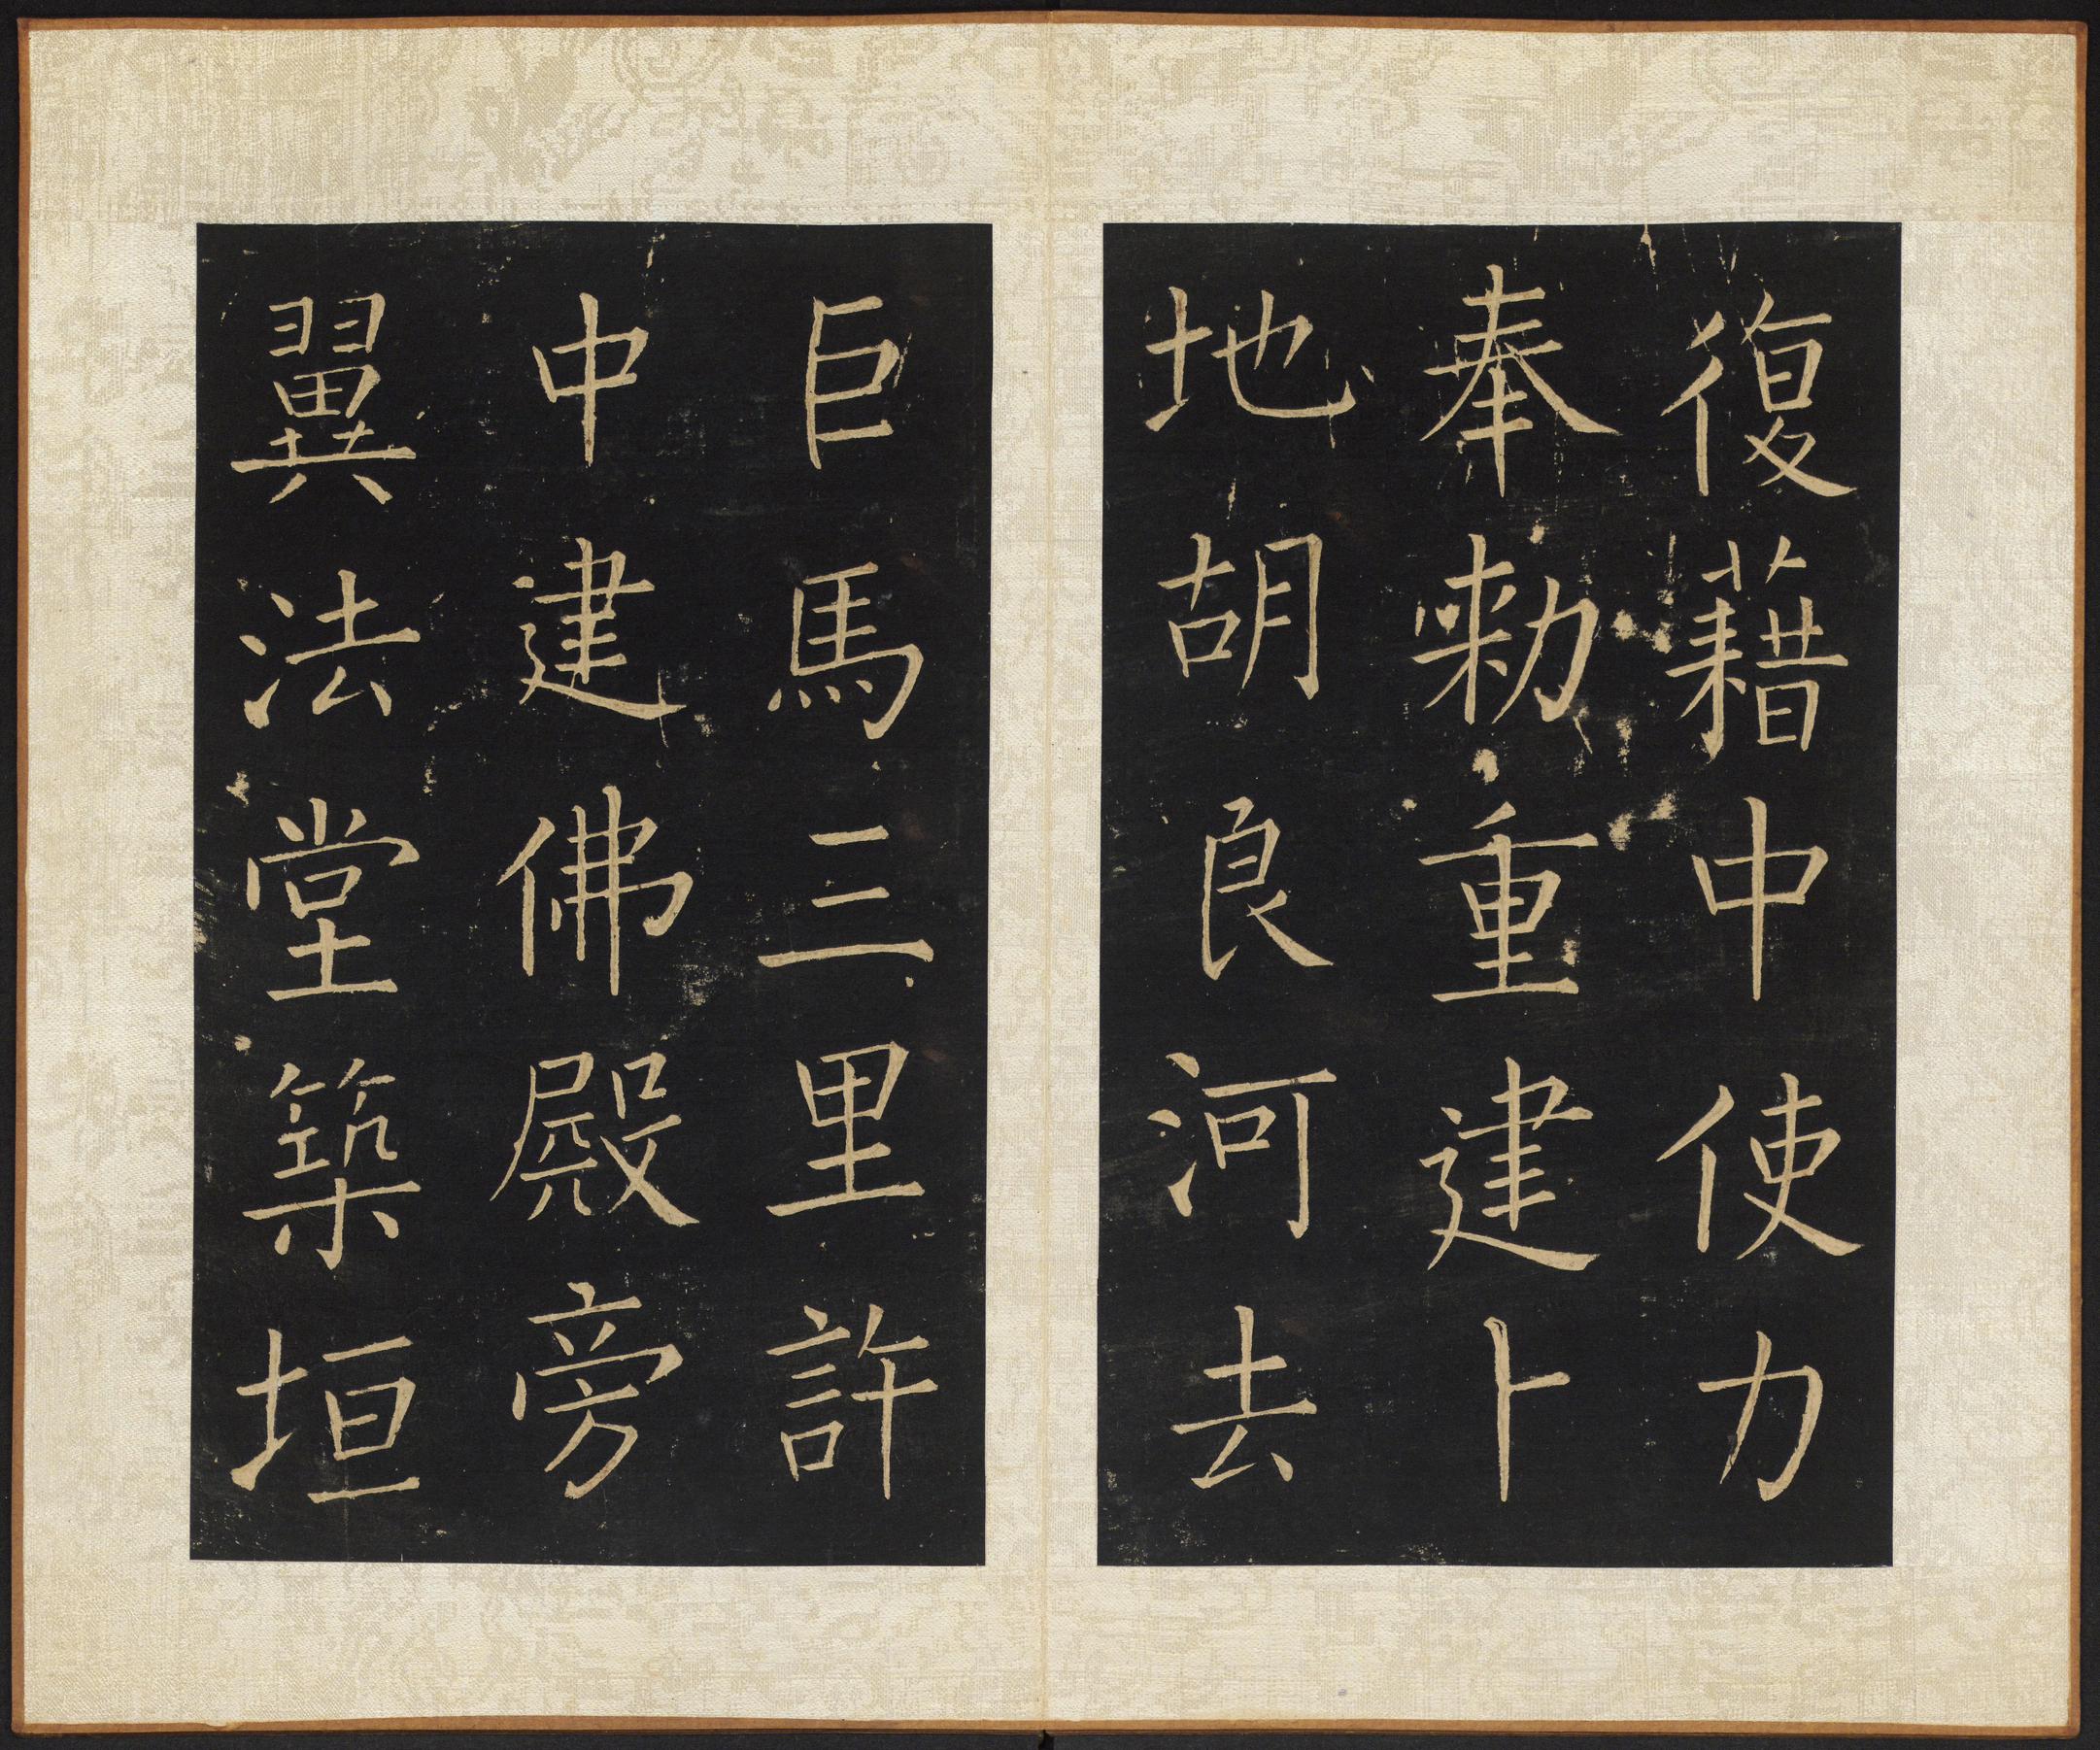 復藉中使力
奉勑重建卜
地胡良河去
巨馬三里許
中建佛殿旁
翼法堂築垣